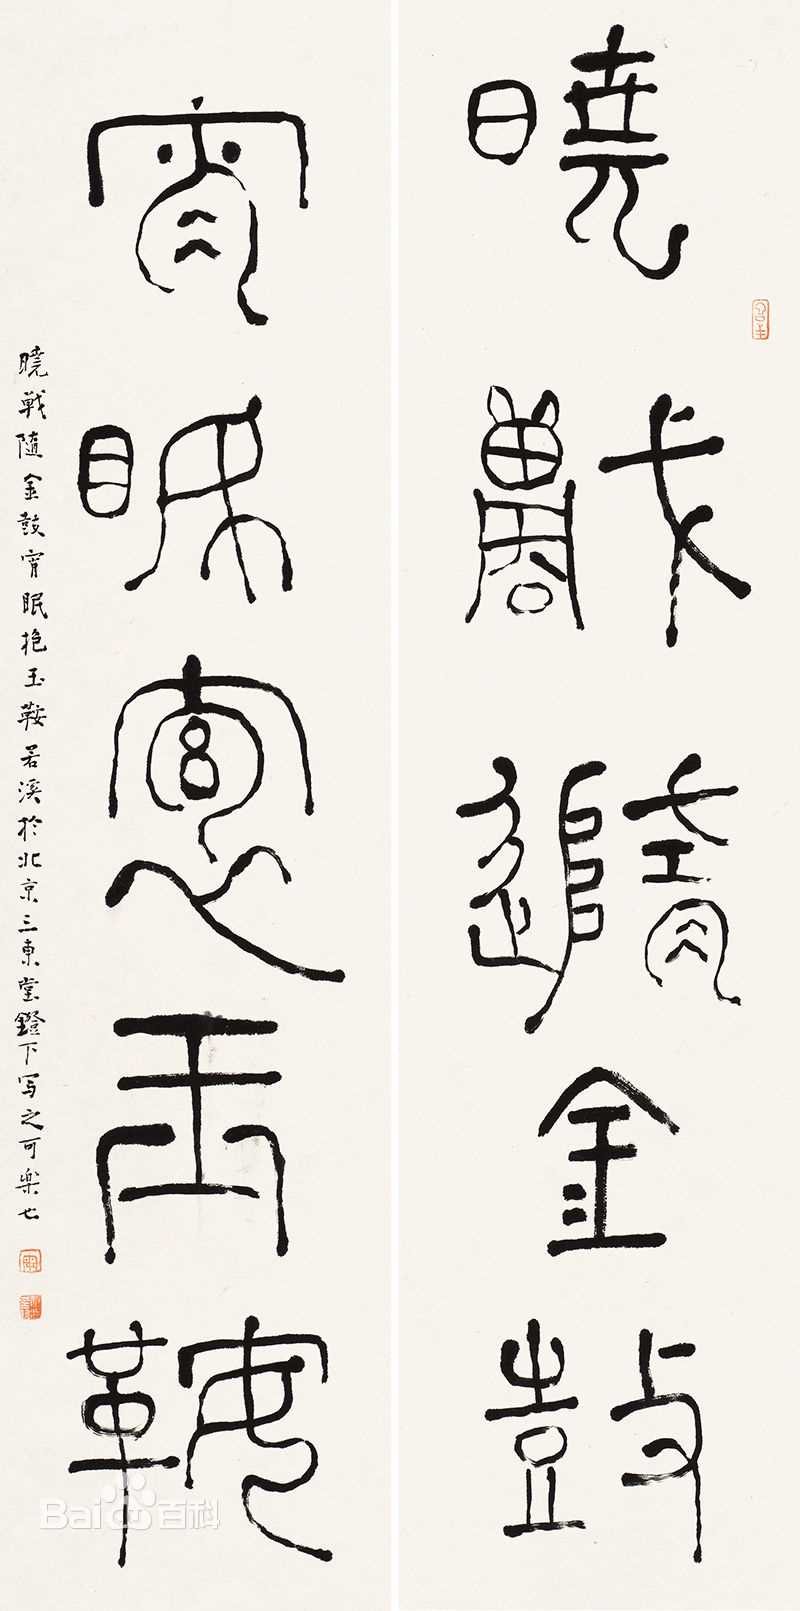 曉戰隨金鼓
宵眠抱玉鞍
曉戦隨金鼓宵眠抱玉鞍若溪於北京三東堂鐙下写之可楽也
Bai 百科